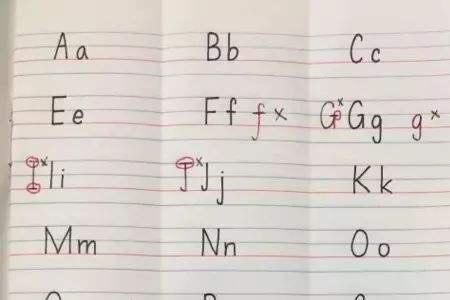 Aa Bb Cc
Ee Ff f × G × Gg g ×
I × Ii J × Jj Kk
Mm Nn Oo